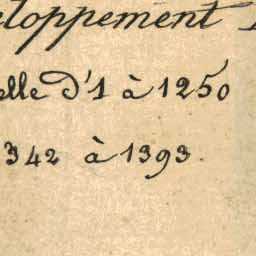 eloppement
elle d'1 à 1250
1342 à 1393.